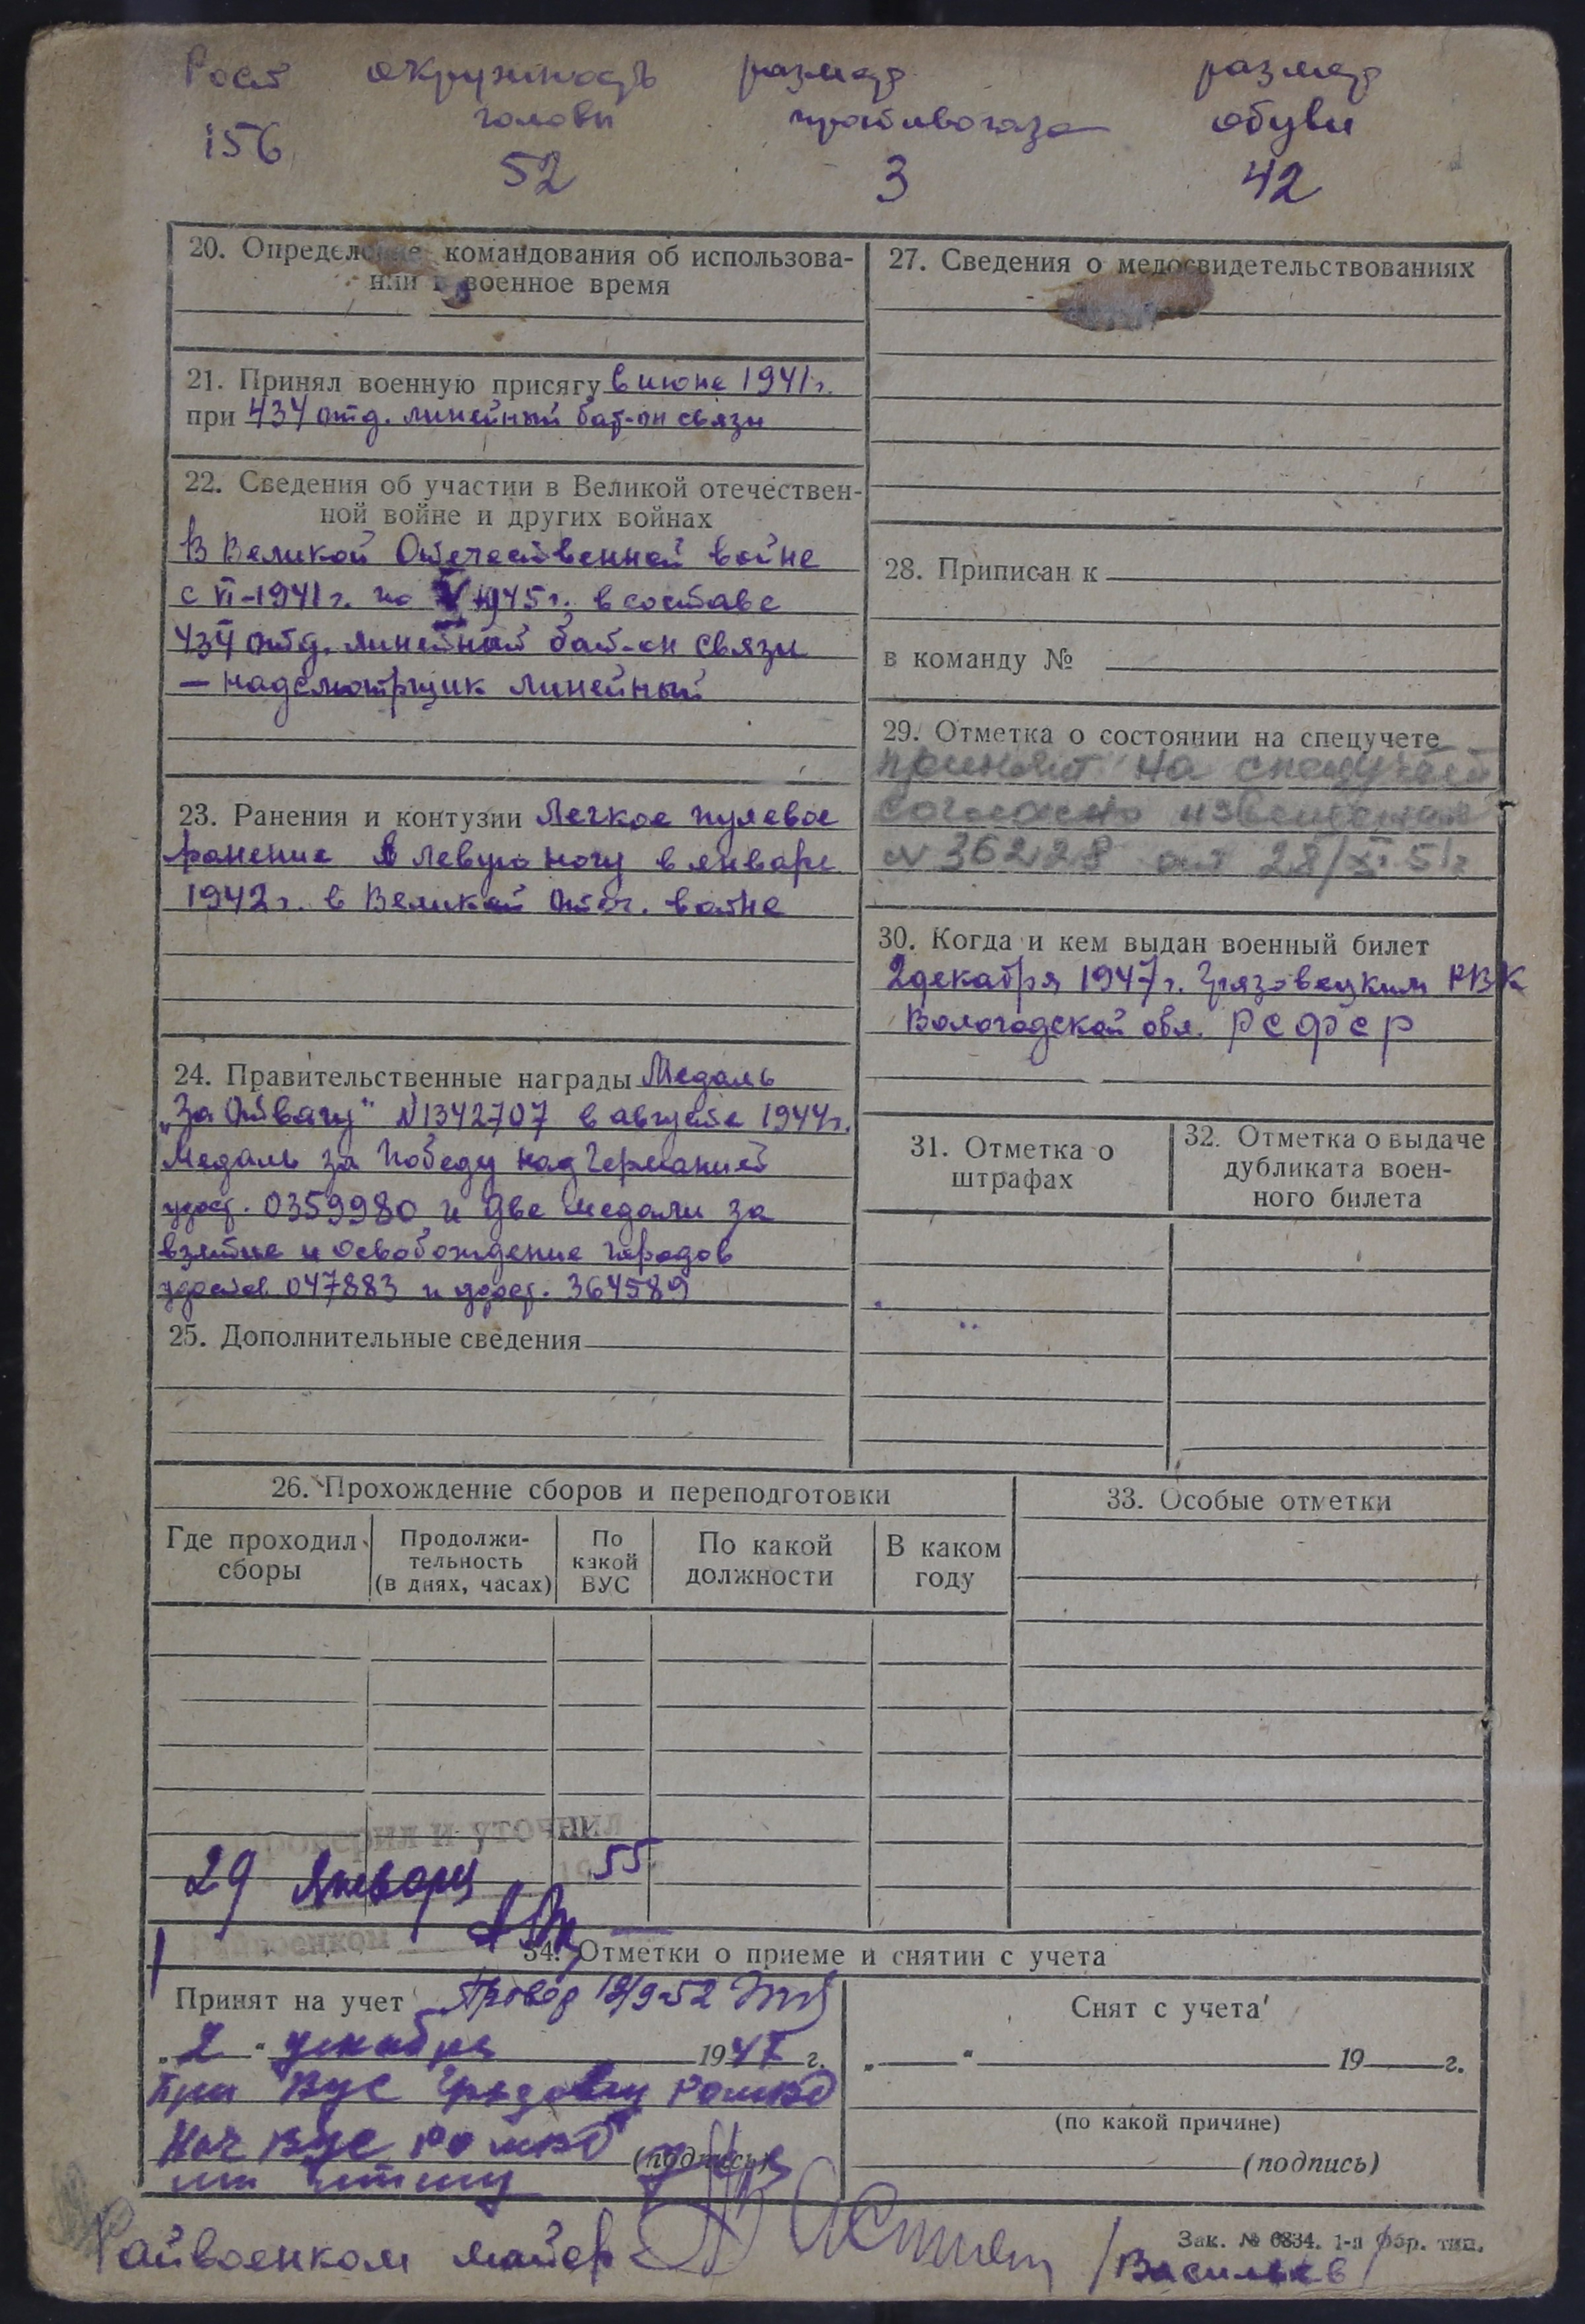 Рост окружность размер размер
головы противогаза обуви
156 52 3 42
20. Определение командования об использова-
нии в военное время
21. Принял военную присягу в июне 1941 г.
при 434 отд. линейный бат-он связи
22. Сведения об участии в Великой отечествен-
ной войне и других войнах
В Великой Отечественной войне
с VI-1941 г. по V 1945 г. в составе
434 отд. линейный бат-он связи
— надсмотрщик линейный
23. Ранения и контузии Легкое пулевое
ранение в левую ногу в январе
1942 г. в Великой Отеч. войне
24. Правительственные награды Медаль
„За Отвагу" №1342707 в августе 1944 г.
Медаль за Победу над Германией
удост. 0359980 и две медали за
взятие и освобождение городов
удостов 047883 и удост. 364589
25. Дополнительные сведения
27. Сведения о медосвидетельствованиях
28. Приписан к
в команду №
29. Отметка о состоянии на спецучете
принят на спецучет
согласно извещения
№ 36228 от 28/XI 51 г
30. Когда и кем выдан военный билет
2 декабря 1947 г. Грязовецким РВК
Вологодской обл. РСФСР
31. Отметка о
штрафах
32. Отметка о выдаче
дубликата воен-
ного билета
26. Прохождение сборов и переподготовки
Где проходил
сборы
Продолжи-
тельность
(в днях, часах)
По
какой
ВУС
По какой
должности
В каком
году
33. Особые отметки
Проверил и уточнил
29 Января 55
Райвоенком
34. Отметки о приеме и снятии с учета
Принят на учет Провер 18/9-52
„2" декабря 1947 г.
При ВУС
Нач ВУС
(подпись)
Снят с учета
„ " 19 г.
(по какой причине)
(подпись)
Райвоенком майор /Васильев/
Зак. № 6834. 1-я Обр. тип.